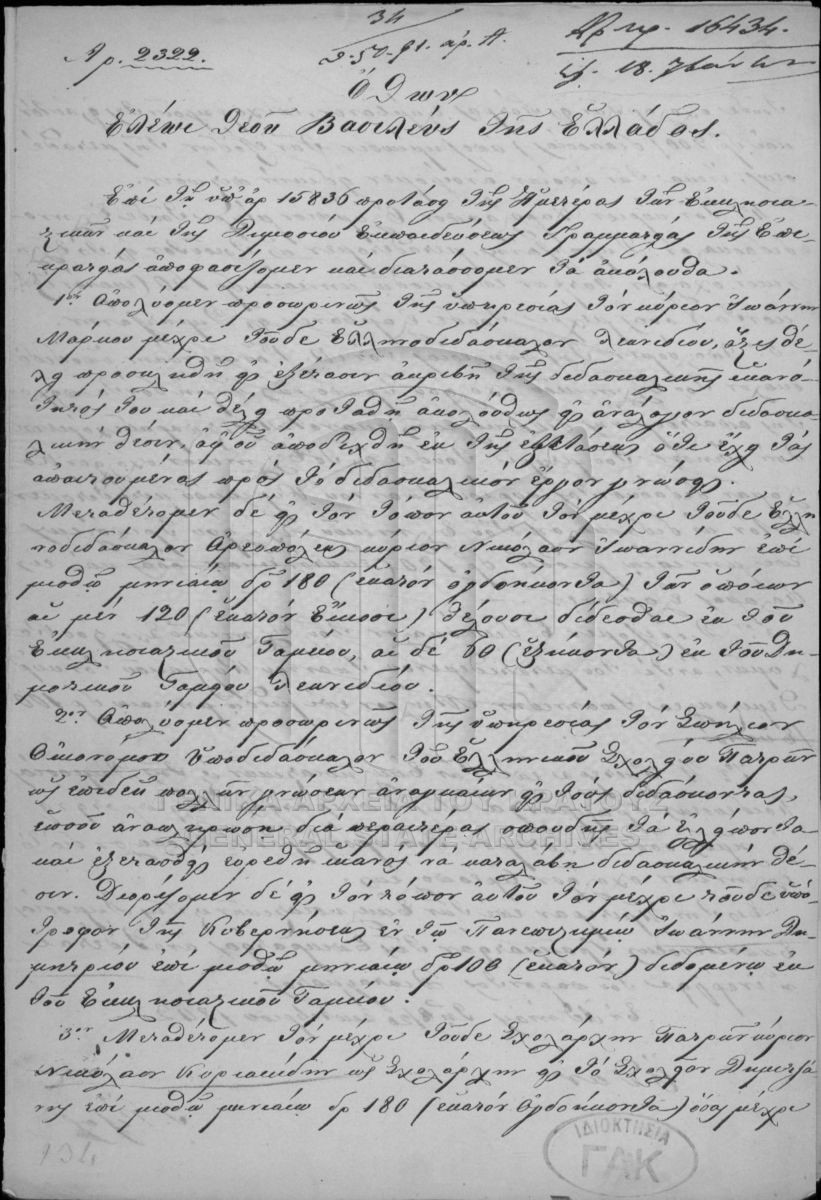 34
Αρ. 2322.
Αρ. πρ. 16434.
Ὄθων
Ἐλέῳ Θεοῦ Βασιλεὺς τῆς Ἑλλάδος.
Ἐπὶ τῇ ὑπ' ἀρ 15836 προτάσει τῆς Ἡμετέρας τῶν Ἐκκλησια-
στικῶν καὶ τῆς Δημοσίου Ἐκπαιδεύσεως Γραμματείας τῆς Ἐπι-
κρατείας ἀποφασίζομεν καὶ διατάσσομεν τὰ ἀκόλουθα.
1ον Ἀπολύομεν προσωρινῶς τῆς ὑπηρεσίας τὸν κύριον Ἰωάννην
Μάρκου μέχρι τοῦδε Ἑλληνοδιδάσκαλον Λεωνιδίου, ὅςτις θέ-
λει προσκληθῆ εἰς ἐξέτασιν ἀκριβῆ τῆς διδασκαλικῆς ἱκανό-
τητός του καὶ θέλει προταθῆ ἀκολούθως εἰς ἀνάλογον διδασκα-
λικὴν θέσιν, ἀφ' οὗ ἀποδειχθῆ ἐκ τῆς ἐξετάσεως ὅτι ἔχει τὰς
ἀπαιτουμένας πρὸς τὸ διδασκαλικὸν ἔργον γνώσεις.
Μεταθέτομεν δὲ εἰς τὸν τόπον αὐτοῦ τὸν μέχρι τοῦδε Ἑλλη
νοδιδάσκαλον Ἀρεοπόλεως κύριον Νικόλαον Ἰωαννίδην ἐπὶ
μισθῷ μηνιαίῳ δρ 180 (ἑκατὸν ὀγδοήκοντα) τῶν ὁποίων
αἱ μὲν 120 (ἑκατὸν εἴκοσι) θέλουσι δίδεσθαι ἐκ τοῦ
Ἐκκλησιαστικοῦ Ταμείου, αἱ δὲ 60 (ἑξήκοντα) ἐκ τοῦ Δη-
μοτικοῦ Ταμείου Λεωνιδίου.
2ον Ἀπολύομεν προσωρινῶς τῆς ὑπηρεσίας τὸν Σπήλιον
Οἰκονόμου Ὑποδιδάσκαλον τοῦ Ἑλληνικοῦ Σχολείου Πατρῶν
ὡς ἐπιδεᾶ πολλῶν γνώσεων ἀναγκαίων εἰς τοὺς διδάσκοντας,
ἑωσοῦ ἀναπληρώσῃ διὰ περαιτέρας σπουδῆς τὰ ἐλλείποντα
καὶ ἐξετασθεὶς εὑρεθῆ ἱκανὸς νὰ καταλάβῃ διδασκαλικὴν θέ-
σιν. Διορίζομεν δὲ εἰς τὸν τόπον αὐτοῦ τὸν μέχρι τοῦδε ὑπό-
τροφον τῆς Κυβερνήσεως ἐν τῷ Πανεπιστημίῳ Ἰωάννην Δη-
μητρίου ἐπὶ μισθῷ μηνιαίῳ δρ 100 (ἑκατόν) διδομένῳ ἐκ
τοῦ Ἐκκλησιαστικοῦ Ταμείου.
3ον Μεταθέτομεν τὸν μέχρι τοῦδε Σχολάρχην Πατρῶν κύριον
Νικόλαον Κυριακίδην ὡς Σχολάρχην εἰς τὸ Σχολεῖον Δημητσά-
νης ἐπὶ μισθῷ μηνιαίῳ δρ 180 (ἑκατὸν ὀγδοήκοντα) ὅσας μέχρι
ΓΕΝΙΚΑ ΑΡΧΕΙΑ ΤΟΥ ΚΡΑΤΟΥΣ
GENERAL STATE ARCHIVES
ΙΔΙΟΚΤΗΣΙΑ
ΓΑΚ